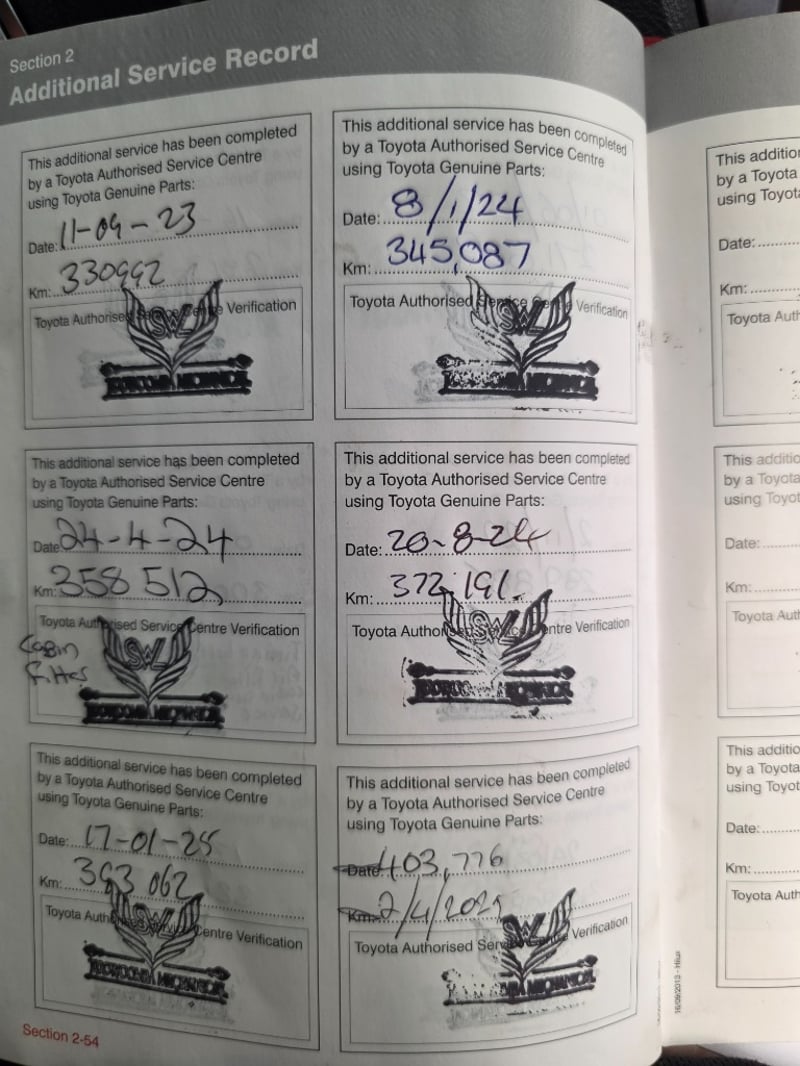 Section 2
Additional Service Record
This additional service has been completed
by a Toyota Authorised Service Centre
using Toyota Genuine Parts:
Date: 11-09-23
Km: 330992
Toyota Authorised Service Centre Verification
SWL
This additional service has been completed
by a Toyota Authorised Service Centre
using Toyota Genuine Parts:
Date: 8/1/24
Km: 345,087
Toyota Authorised Service Centre Verification
SWL
MECHANICAL
This additional service has been completed
by a Toyota Authorised Service Centre
using Toyota Genuine Parts:
Date 24-4-24
Km: 358 512
Toyota Authorised Service Centre Verification
Cabin
Filter
SWL
MECHANICAL
This additional service has been completed
by a Toyota Authorised Service Centre
using Toyota Genuine Parts:
Date: 20-8-24
Km: 372,191
Toyota Authorised Service Centre Verification
SWL
MECHANICAL
This additional service has been completed
by a Toyota Authorised Service Centre
using Toyota Genuine Parts:
Date: 17-01-25
Km: 393 062
Toyota Authorised Service Centre Verification
SWL
MECHANICAL
This additional service has been completed
by a Toyota Authorised Service Centre
using Toyota Genuine Parts:
Date: 403,776
Km: 2/4/2025
Toyota Authorised Service Centre Verification
SWL
MECHANICAL
Section 2-54
16/09/2013 - Hilux
This additio
by a Toyota
using Toyota
Date:
Km:
Toyota Auth
This additio
by a Toyota
using Toyot
Date:
Km:
Toyota Auth
This additio
by a Toyota
using Toyot
Date:
Km:
Toyota Auth